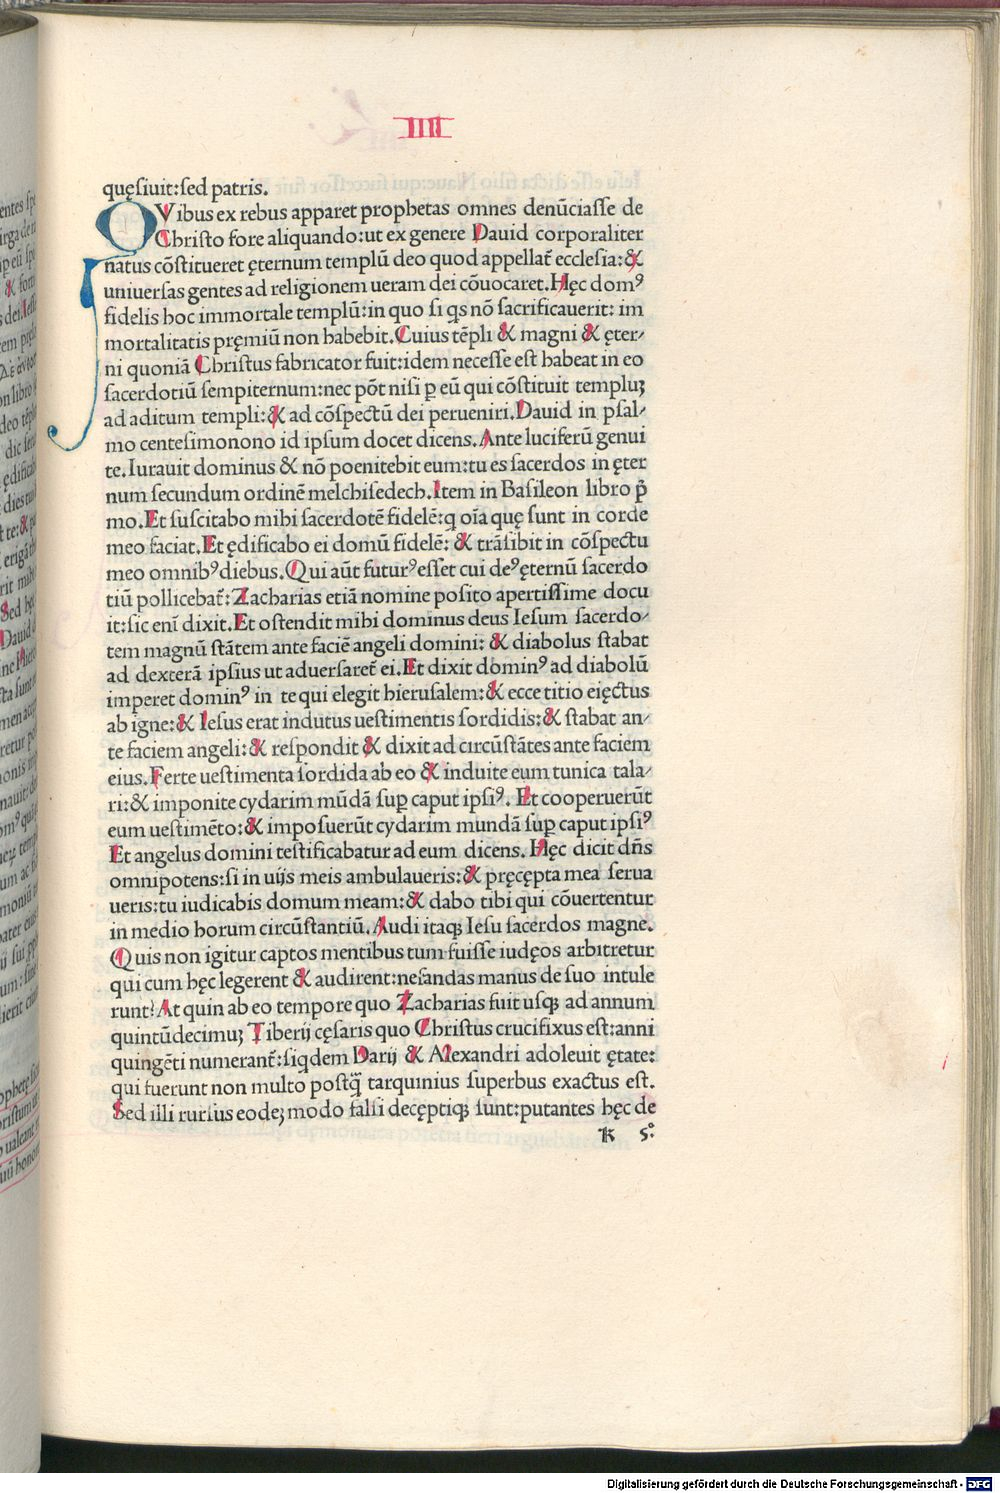 IIII
quęſiuit:ſed patris.
QVibus ex rebus apparet prophetas omnes denūciaſſe de
Chriſto fore aliquando:ut ex genere Dauid corporaliter
natus cōſtitueret ęternum templū deo quod appellat̄ eccleſia:&
uniuerſas gentes ad religionem ueram dei cōuocaret.Hęc domꝰ
fidelis hoc immortale templū:in quo ſi q̇s nō ſacrificauerit: im
mortalitatis pręmiū non habebit.Cuius tēpli & magni & ęter-
ni quoniā Chriſtus fabricator fuit:idem neceſſe eſt habeat in eo
ſacerdotiū ſempiternum:nec pōt niſi ꝑ eū qui cōſtituit templuꝫ
ad aditum templi:& ad cōſpectū dei perueniri.Dauid in pſal-
mo centeſimonono id ipſum docet dicens.Ante luciferū genui
te.Iurauit dominus & nō poenitebit eum:tu es ſacerdos in ęter
num ſecundum ordinē melchiſedech.Item in Baſileon libro pͥ
mo.Et ſuſcitabo mihi ſacerdotē fidelē:q oīa quę ſunt in corde
meo faciat.Et ędificabo ei domū fidelē: & trāſibit in cōſpectu
meo omnibꝰ diebus.Qui aūt futurꝰ eſſet cui deꝰ ęternū ſacerdo
tiū pollicebat̄:Zacharias etiā nomine poſito apertiſſime docu
it:ſic enī dixit.Et oſtendit mihi dominus deus Ieſum ſacerdo-
tem magnū ſtātem ante faciē angeli domini: & diabolus ſtabat
ad dexterā ipſius ut aduerſaret̄ ei.Et dixit dominꝰ ad diabolū
imperet dominꝰ in te qui elegit hieruſalem:& ecce titio eięctus
ab igne:& Ieſus erat indutus ueſtimentis ſordidis:& ſtabat an-
te faciem angeli:& reſpondit & dixit ad circūſtātes ante faciem
eius.Ferte ueſtimenta ſordida ab eo & induite eum tunica tala-
ri:& imponite cydarim mūdā ſuꝑ caput ipſiꝰ. Et cooperuerūt
eum ueſtimēto:& impoſuerūt cydarim mundā ſuꝑ caput ipſiꝰ
Et angelus domini teſtificabatur ad eum dicens. Hęc dicit dn̄s
omnipotens:ſi in uijs meis ambulaueris:& pręcępta mea ſerua
ueris:tu iudicabis domum meam:& dabo tibi qui cōuertentur
in medio horum circūſtantiū.Audi itaqꝫ Ieſu ſacerdos magne.
Quis non igitur captos mentibus tum fuiſſe iudęos arbitretur
qui cum hęc legerent & audirent:nefandas manus deſuo intule
runt?At quin ab eo tempore quo Zacharias fuit uſqꝫ ad annum
quintūdecimuꝫ Tiberij cęſaris quo Chriſtus crucifixus eſt:anni
quingēti numerant̄:ſiq̇dem Darij & Alexandri adoleuit ętate:
qui fuerunt non multo poſtq̄ tarquinius ſuperbus exactus eſt.
Sed illi rurſus eodeꝫ modo falſi decęptiqꝫ ſunt:putantes hęc de
K 5°.
Digitalisierung gefördert durch die Deutsche Forschungsgemeinschaft - DFG